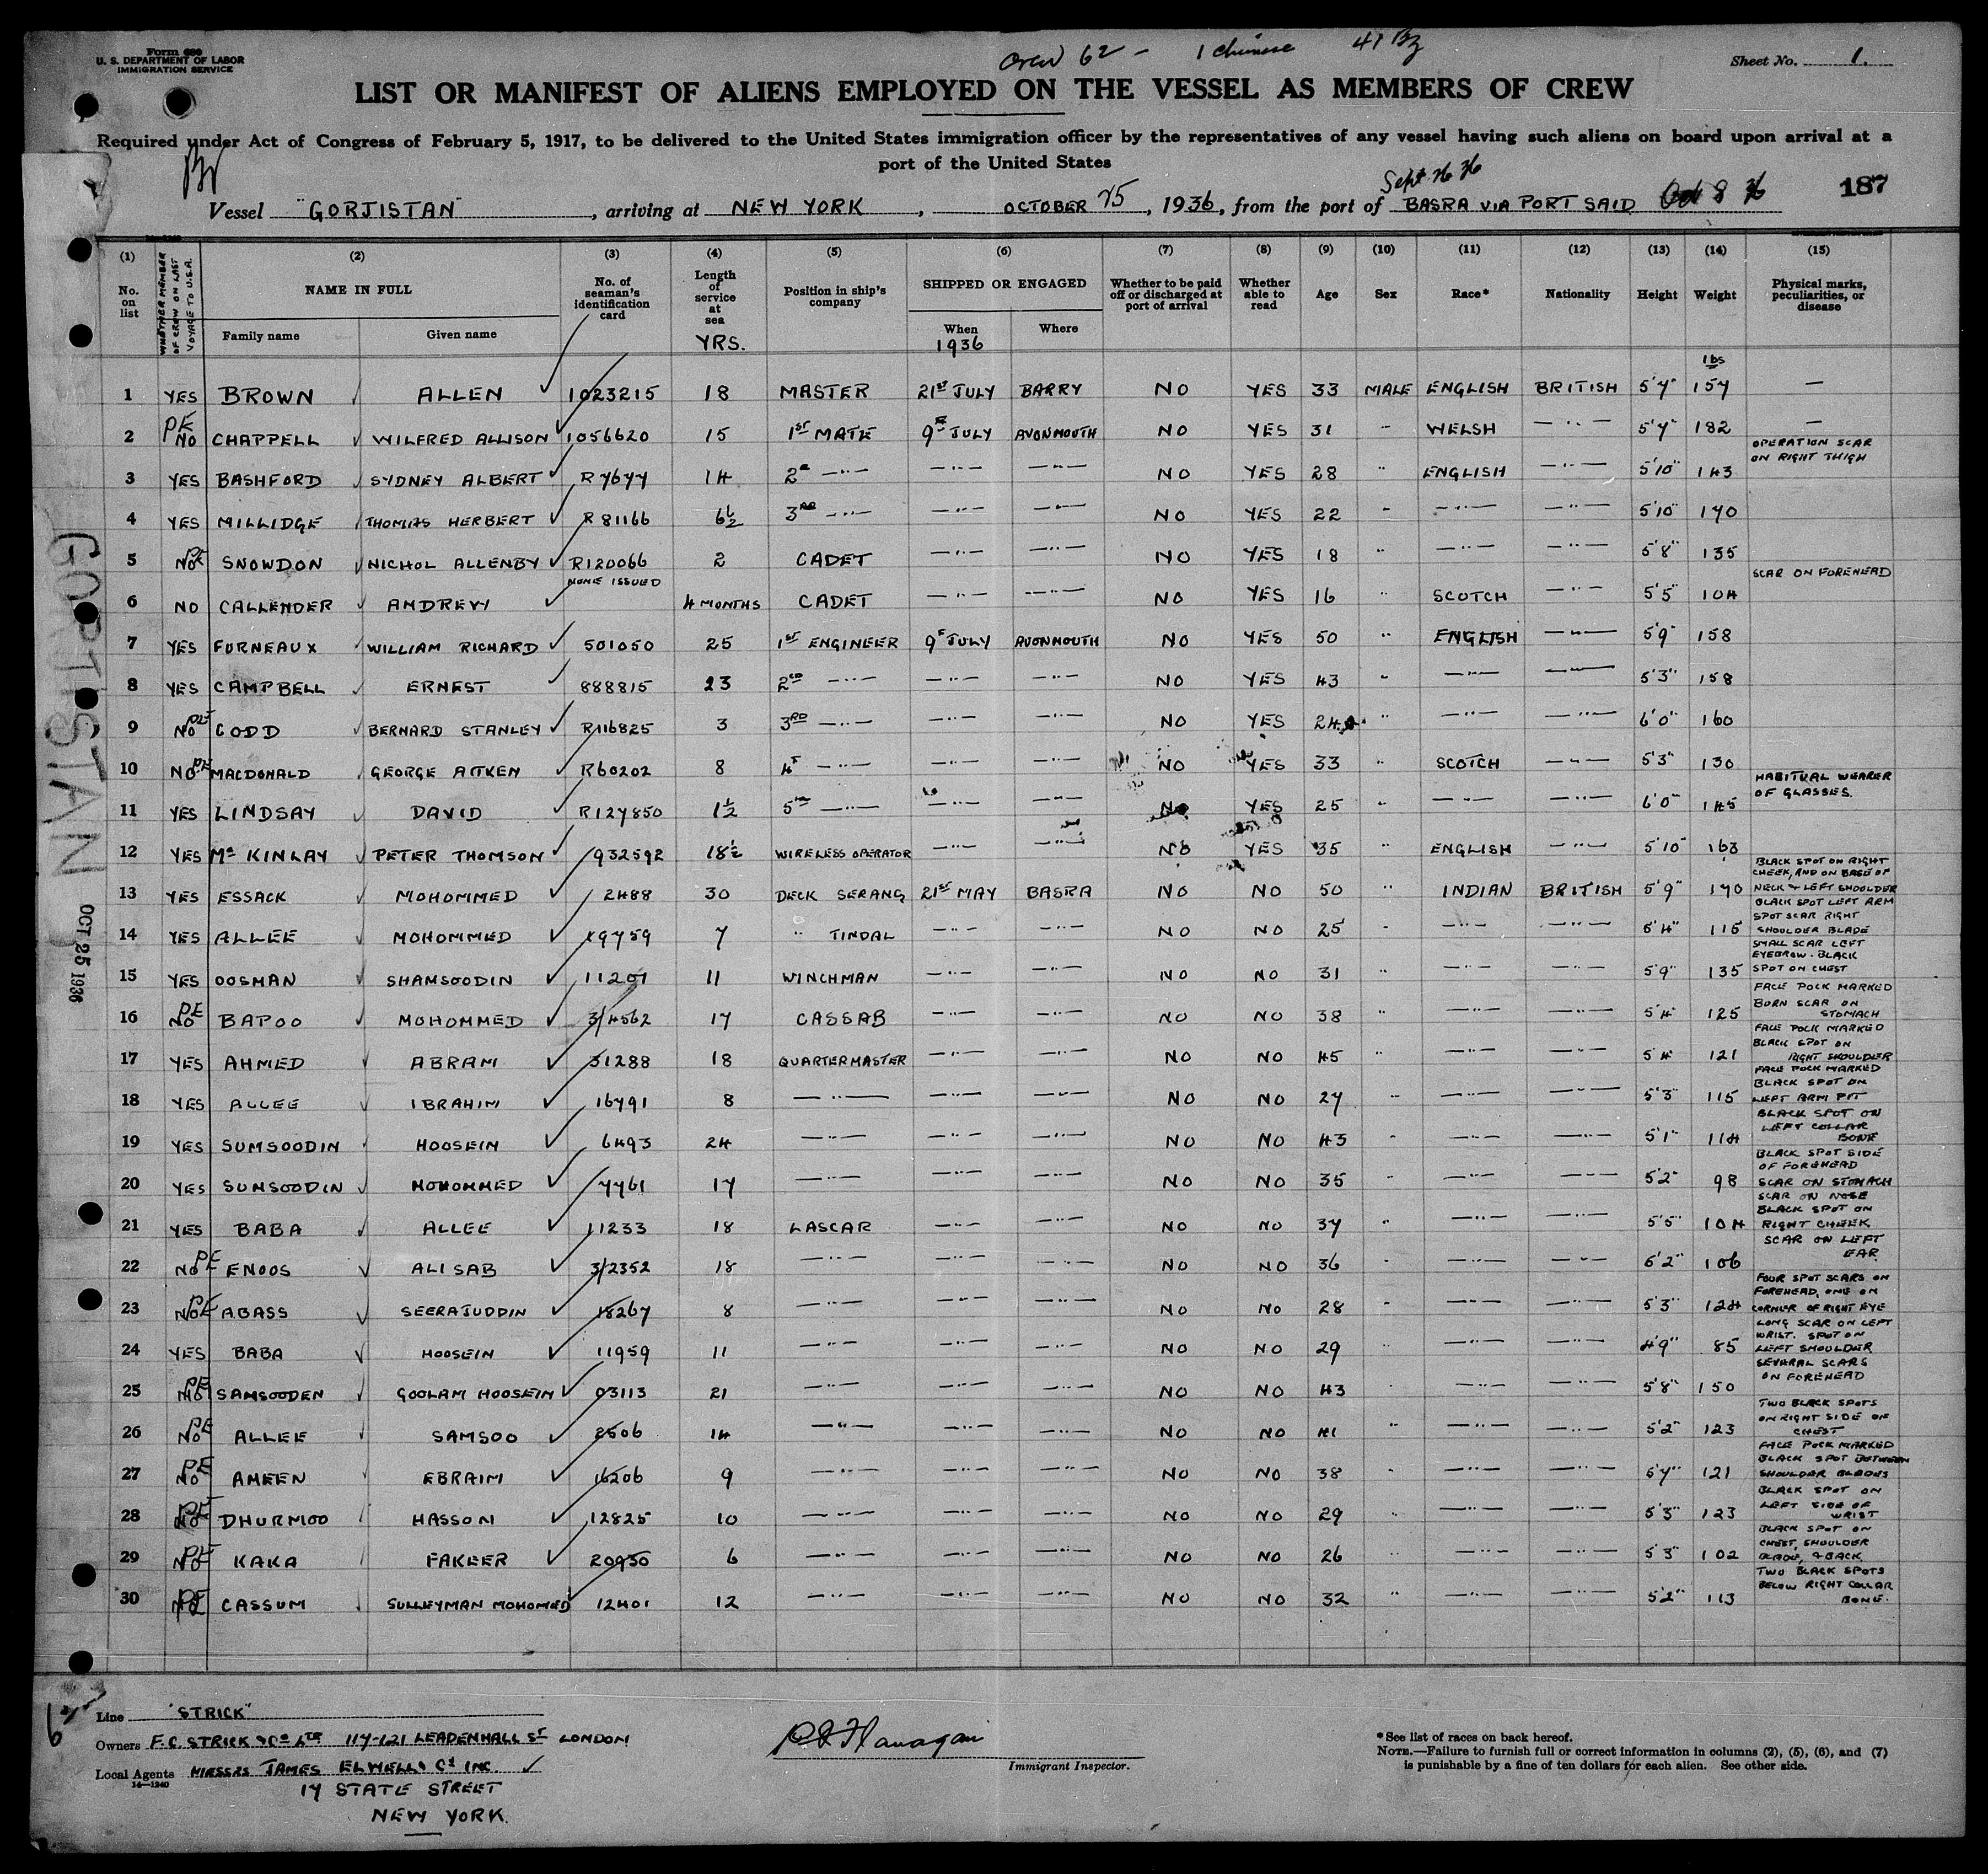 Form 689
U. S. DEPARTMENT OF LABOR
IMMIGRATION SERVICE
Crew 62 - 1 Chinese
Sheet No. 1.
LIST OR MANIFEST OF ALIENS EMPLOYED ON THE VESSEL AS MEMBERS OF CREW
Required under Act of Congress of February 5, 1917, to be delivered to the United States immigration officer by the representatives of any vessel having such aliens on board upon arrival at a
port of the United States
Sept 26 36
Vessel "GORJISTAN", arriving at NEW YORK, OCTOBER 25, 1936, from the port of BASRA VIA PORT SAID Oct 8 36 187
(1) (2) (3) (4) (5) (6) (7) (8) (9) (10) (11) (12) (13) (14) (15)
No. on list WHETHER MEMBER OF CREW ON LAST VOYAGE TO U.S.A. NAME IN FULL Family name Given name No. of seaman's identification card Length of service at sea YRS. Position in ship's company SHIPPED OR ENGAGED When 1936 Where Whether to be paid off or discharged at port of arrival Whether able to read Age Sex Race* Nationality Height Weight lbs Physical marks, peculiarities, or disease
1 YES BROWN ALLEN 1023215 18 MASTER 21ST JULY BARRY NO YES 33 MALE ENGLISH BRITISH 5'7" 157 —
2 PE NO CHAPPELL WILFRED ALLISON 1056620 15 1ST MATE 9TH JULY AVONMOUTH NO YES 31 " WELSH —"— 5'7" 182 —
3 YES BASHFORD SYDNEY ALBERT R7677 14 2D —"— —"— —"— NO YES 28 " ENGLISH —"— 5'10" 143 OPERATION SCAR ON RIGHT THIGH
4 YES MILLIDGE THOMAS HERBERT R81166 6½ 3RD —"— —"— —"— NO YES 22 " —"— —"— 5'10" 170
5 PE NO SNOWDON NICHOL ALLENBY R120066 2 CADET —"— —"— NO YES 18 " —"— —"— 5'8" 135
6 NO CALLENDER ANDREW NONE ISSUED 4 MONTHS CADET —"— —"— NO YES 16 " SCOTCH —"— 5'5" 104 SCAR ON FOREHEAD
7 YES FURNEAUX WILLIAM RICHARD 501050 25 1ST ENGINEER 9T JULY AVONMOUTH NO YES 50 " ENGLISH —"— 5'9" 158
8 YES CAMPBELL ERNEST 888815 23 2CD —"— —"— —"— NO YES 43 " —"— —"— 5'3" 158
9 PE NO CODD BERNARD STANLEY R116825 3 3RD —"— —"— —"— NO YES 24 " —"— —"— 6'0" 160
10 PE NO MACDONALD GEORGE AITKEN R60202 8 4T —"— —"— —"— NO YES 33 " SCOTCH —"— 5'3" 130
11 YES LINDSAY DAVID R127850 1½ 5TH —"— —"— —"— NO YES 25 " —"— —"— 6'0" 145 HABITUAL WEARER OF GLASSES.
12 YES Mc KINLAY PETER THOMSON 932592 18½ WIRELESS OPERATOR —"— —"— NO YES 35 " ENGLISH —"— 5'10" 163
13 YES ESSACK MOHOMMED 2488 30 DECK SERANG 21ST MAY BASRA NO NO 50 " INDIAN BRITISH 5'9" 170 BLACK SPOT ON RIGHT CHEEK, AND ON BASE OF NECK & LEFT SHOULDER
14 YES ALLEE MOHOMMED 19759 7 " TINDAL —"— —"— NO NO 25 " —"— —"— 5'4" 115 BLACK SPOT LEFT ARM SPOT SCAR RIGHT SHOULDER BLADE
15 YES OOSMAN SHAMSOODIN 11201 11 WINCHMAN —"— —"— NO NO 31 " —"— —"— 5'9" 135 SMALL SCAR LEFT EYEBROW. BLACK SPOT ON CHEST
16 PE NO BAPOO MOHOMMED 3/4562 17 CASSAB —"— —"— NO NO 38 " —"— —"— 5'4" 125 FACE POCK MARKED BURN SCAR ON STOMACH
17 YES AHMED ABRAM 31288 18 QUARTERMASTER —"— —"— NO NO 45 " —"— —"— 5'4" 121 FACE POCK MARKED BLACK SPOT ON RIGHT SHOULDER
18 YES ALLEE IBRAHIM 16791 8 —"— —"— —"— NO NO 27 " —"— —"— 5'3" 115 FACE POCK MARKED BLACK SPOT ON LEFT ARM PIT
19 YES SUMSOODIN HOOSEIN 6493 24 —"— —"— —"— NO NO 43 " —"— —"— 5'1" 114 BLACK SPOT ON LEFT COLLAR BONE
20 YES SUMSOODIN MOHOMMED 7761 17 —"— —"— —"— NO NO 35 " —"— —"— 5'2" 98 BLACK SPOT SIDE OF FOREHEAD SCAR ON STOMACH
21 YES BABA ALLEE 11233 18 LASCAR —"— —"— NO NO 37 " —"— —"— 5'5" 104 SCAR ON NOSE BLACK SPOT ON RIGHT CHEEK
22 PE NO ENOOS ALI SAB 3/2352 18 —"— —"— —"— NO NO 36 " —"— —"— 5'2" 106 SCAR ON LEFT EAR
23 PE NO ABASS SEERAJUDDIN 18267 8 —"— —"— —"— NO NO 28 " —"— —"— 5'3" 124 FOUR SPOT SCARS ON FOREHEAD, ONE ON CORNER OF RIGHT EYE
24 YES BABA HOOSEIN 11959 11 —"— —"— —"— NO NO 29 " —"— —"— 4'9" 85 LONG SCAR ON LEFT WRIST. SPOT ON LEFT SHOULDER
25 PE NO SAMSOODEN GOOLAM HOOSEIN 03113 21 —"— —"— —"— NO NO 43 " —"— —"— 5'8" 150 SEVERAL SCARS ON FOREHEAD
26 PE NO ALLEE SAMSOO 2506 14 —"— —"— —"— NO NO 41 " —"— —"— 5'2" 123 TWO BLACK SPOTS ON RIGHT SIDE OF CHEST
27 PE NO AMEEN EBRAIM 16206 9 —"— —"— —"— NO NO 38 " —"— —"— 5'7" 121 FACE POCK MARKED BLACK SPOT BETWEEN SHOULDER BLADES
28 PE NO DHURMOO HASSOM 12825 10 —"— —"— —"— NO NO 29 " —"— —"— 5'3" 123 BLACK SPOT ON LEFT SIDE OF WRIST
29 PE NO KAKA FAKEER 20950 6 —"— —"— —"— NO NO 26 " —"— —"— 5'3" 102 BLACK SPOT ON CHEST, SHOULDER BLADE, & BACK
30 PE NO CASSUM SULLEYMAN MOHOMED 12401 12 —"— —"— —"— NO NO 32 " —"— —"— 5'2" 113 TWO BLACK SPOTS BELOW RIGHT COLLAR BONE.
GORJISTAN
OCT 25 1936
Line "STRICK"
Owners F.C. STRICK & Co LTD 117-121 LEADENHALL ST LONDON
Local Agents MESSRS JAMES ELWELL & Co INC.
14—1240
17 STATE STREET
NEW YORK.
Flanagan
Immigrant Inspector.
*See list of races on back hereof.
NOTE.—Failure to furnish full or correct information in columns (2), (5), (6), and (7)
is punishable by a fine of ten dollars for each alien. See other side.